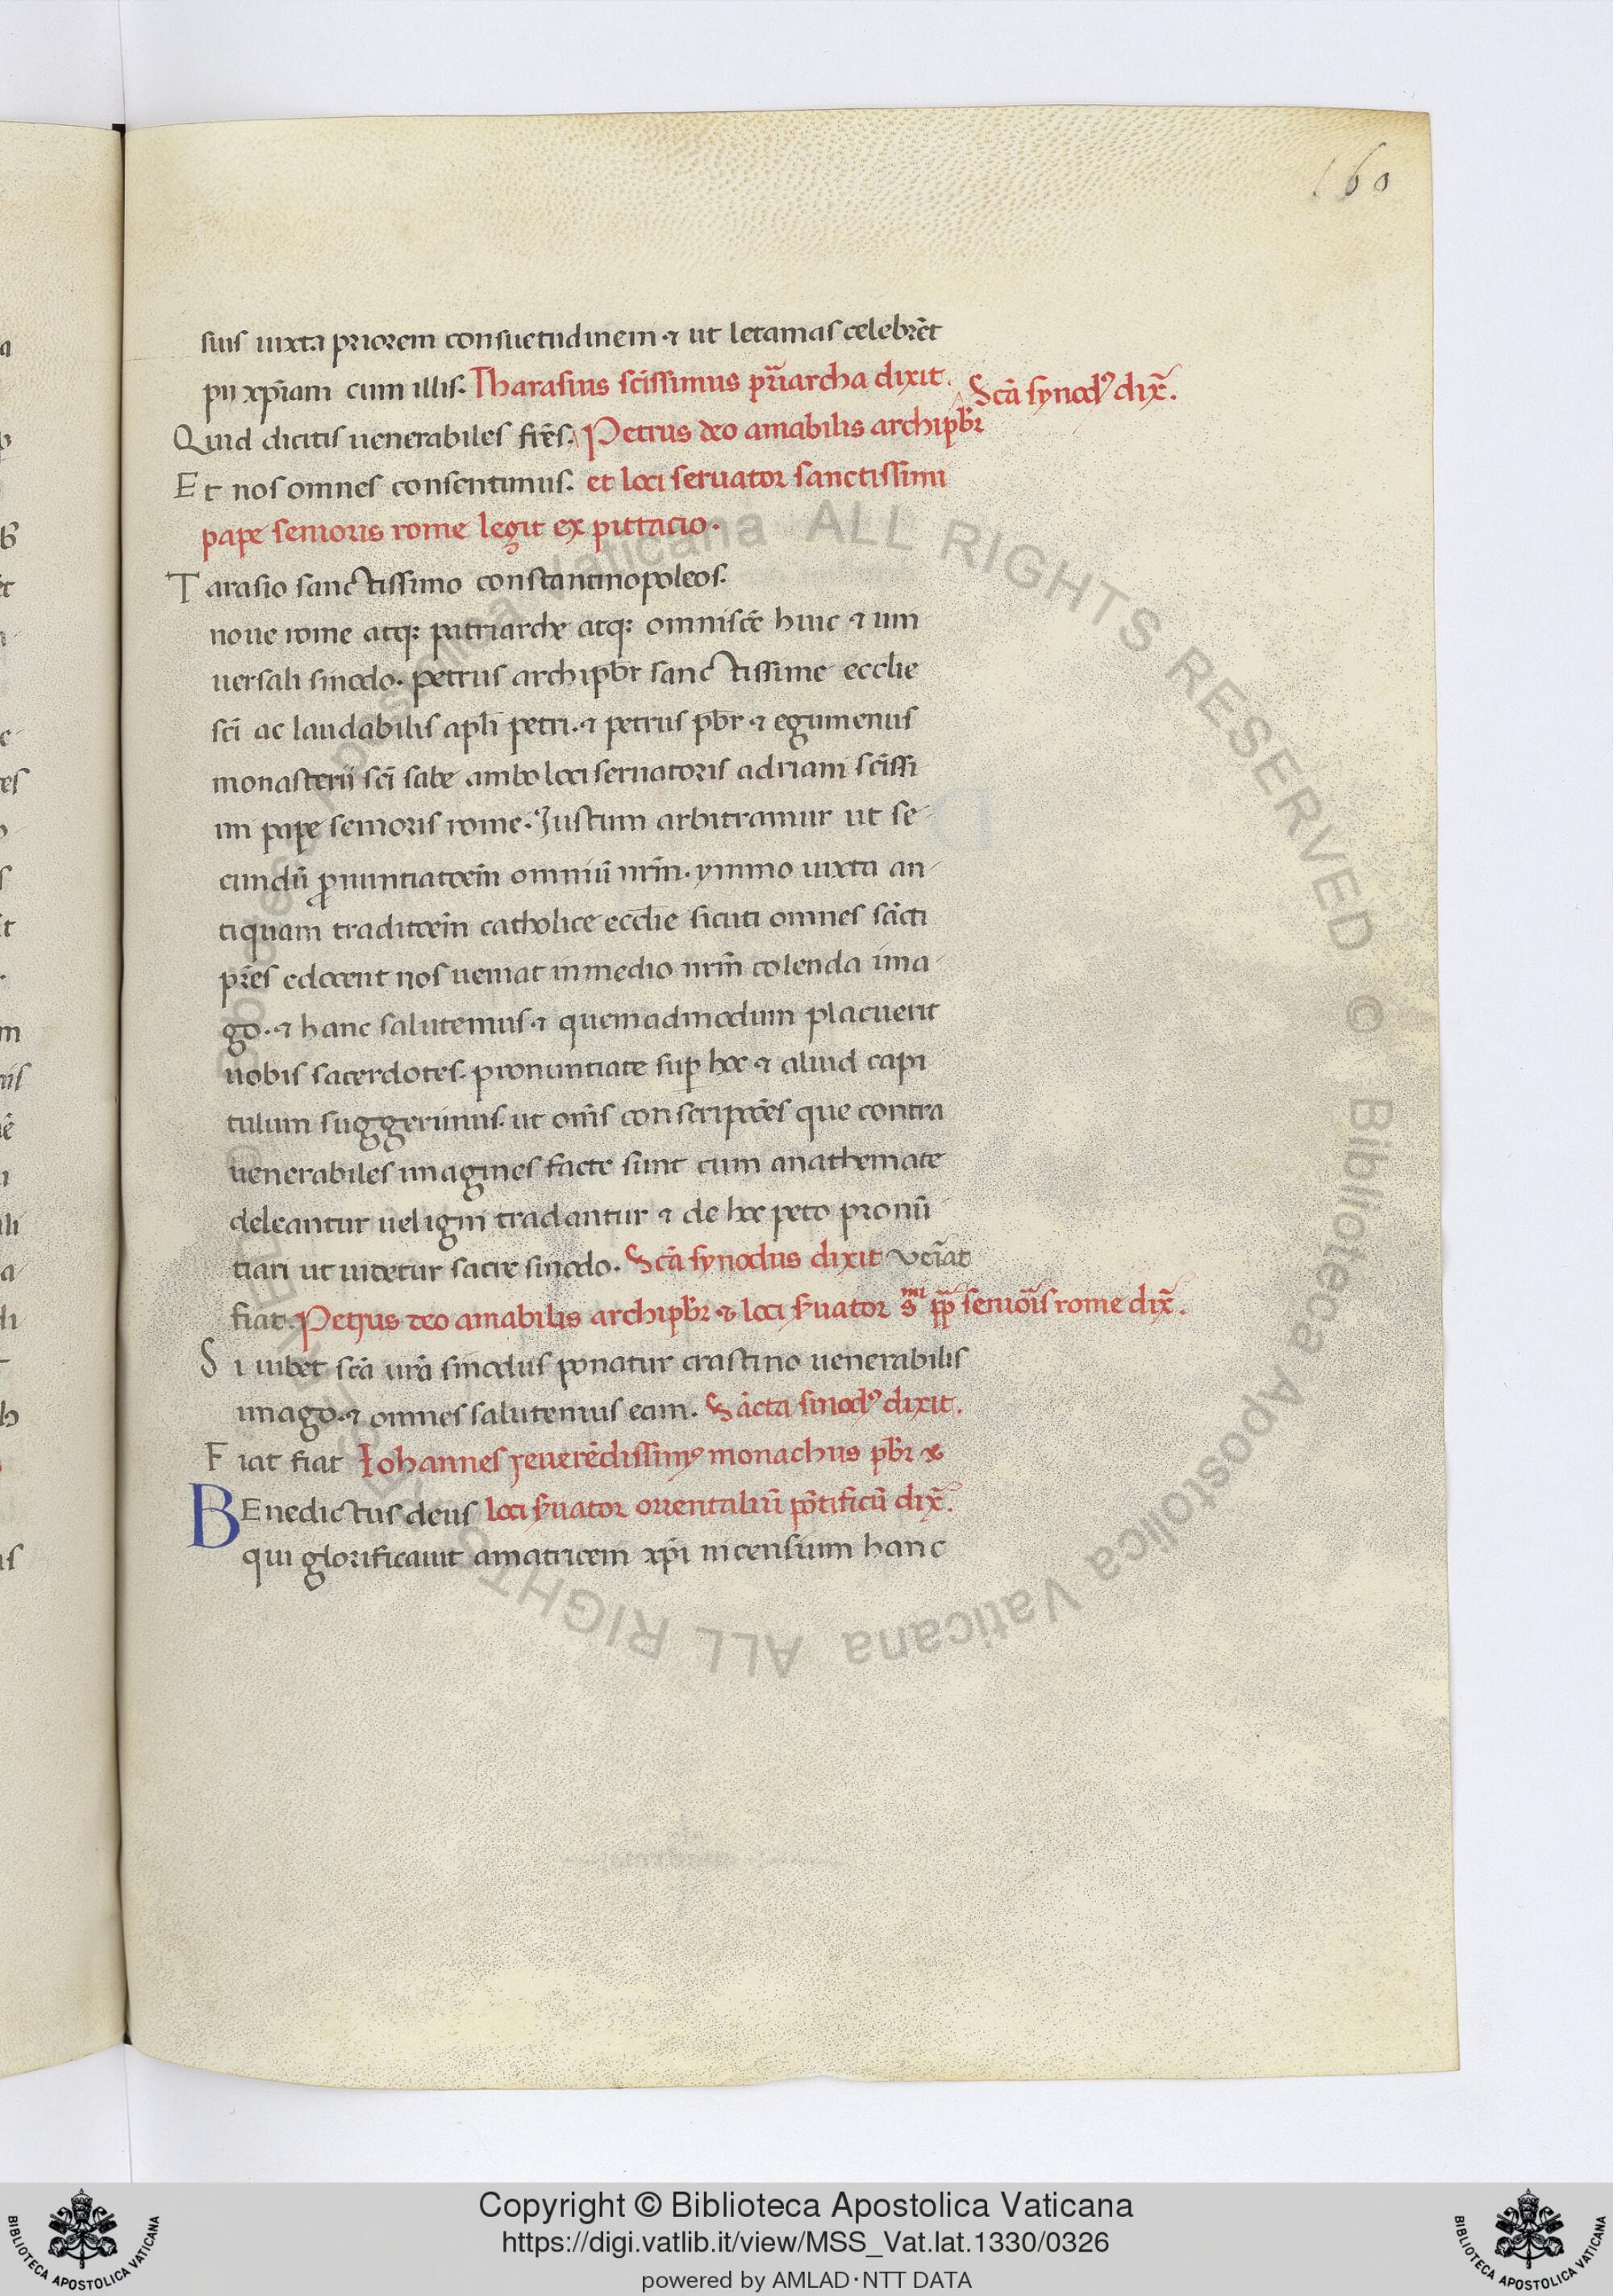 160
suis iuxta priorem consuetudinem · ⁊ ut letamas celebrēt
pii xp̄iani cum illis. Tharasius sc̄issimus pr̄iarcha dixit. Sc̄a synodꝰ dix̄.
Quid dicitis uenerabiles fr̄es. Petrus deo amabilis archipb̄r
Et nos omnes consentimus. et loci seruator sanctissimi
pape senioris rome legit ex pittacio.
Tarasio sanctissimo constantinopoleos.
noue rome atq; patriarche atq; omni sc̄e huic ⁊ uni
uersali sinodo. petrus archipb̄r sanctissime ecclie
sc̄i ac laudabilis apl̄i petri. ⁊ petrus pb̄r ⁊ egumenus
monasterii sc̄i sabe ambo loci seruatoris adriani sc̄issi
mi pape senioris rome. Iustum arbitramur ut se-
cundū ꝓnuntiatōem omniū nr̄m. ymmo iuxta an-
tiquam traditōem catholice eccl̄ie sicuti omnes sācti
pr̄es edocent nos ueniat in medio nr̄m colenda ima-
go. ⁊ hanc salutemus. ⁊ quemadmodum placuerit
uobis sacerdotes. pronuntiate sup hoc ⁊ aliud capi
tulum suggerimus. ut om̄s conscriptōes que contra
uenerabiles imagines facte sunt cum anathemate
deleantur uel igni tradantur ⁊ de hoc peto pronū
tiari ut uitetur sacre sinodo. Sc̄a synodus dixit Veīat
fiat. Petrus deo amabilis archipb̄r ⁊ loci s̄uator s̄mi pp̄ senioīs rome dix̄.
Si iubet sc̄a ur̄a sinodus ponatur crastino uenerabilis
imago. ⁊ omnes salutemus eam. Sācta sinodꝰ dixit.
Fiat fiat Iohannes reuerēdissimꝰ monachus pb̄r ⁊
BEnedictus deus loci s̄uator orientaliū pōtificū dix̄.
qui glorificauit amatricem xp̄i nicensium hanc
Copyright © Biblioteca Apostolica Vaticana
https://digi.vatlib.it/view/MSS_Vat.lat.1330/0326
powered by AMLAD·NTT DATA